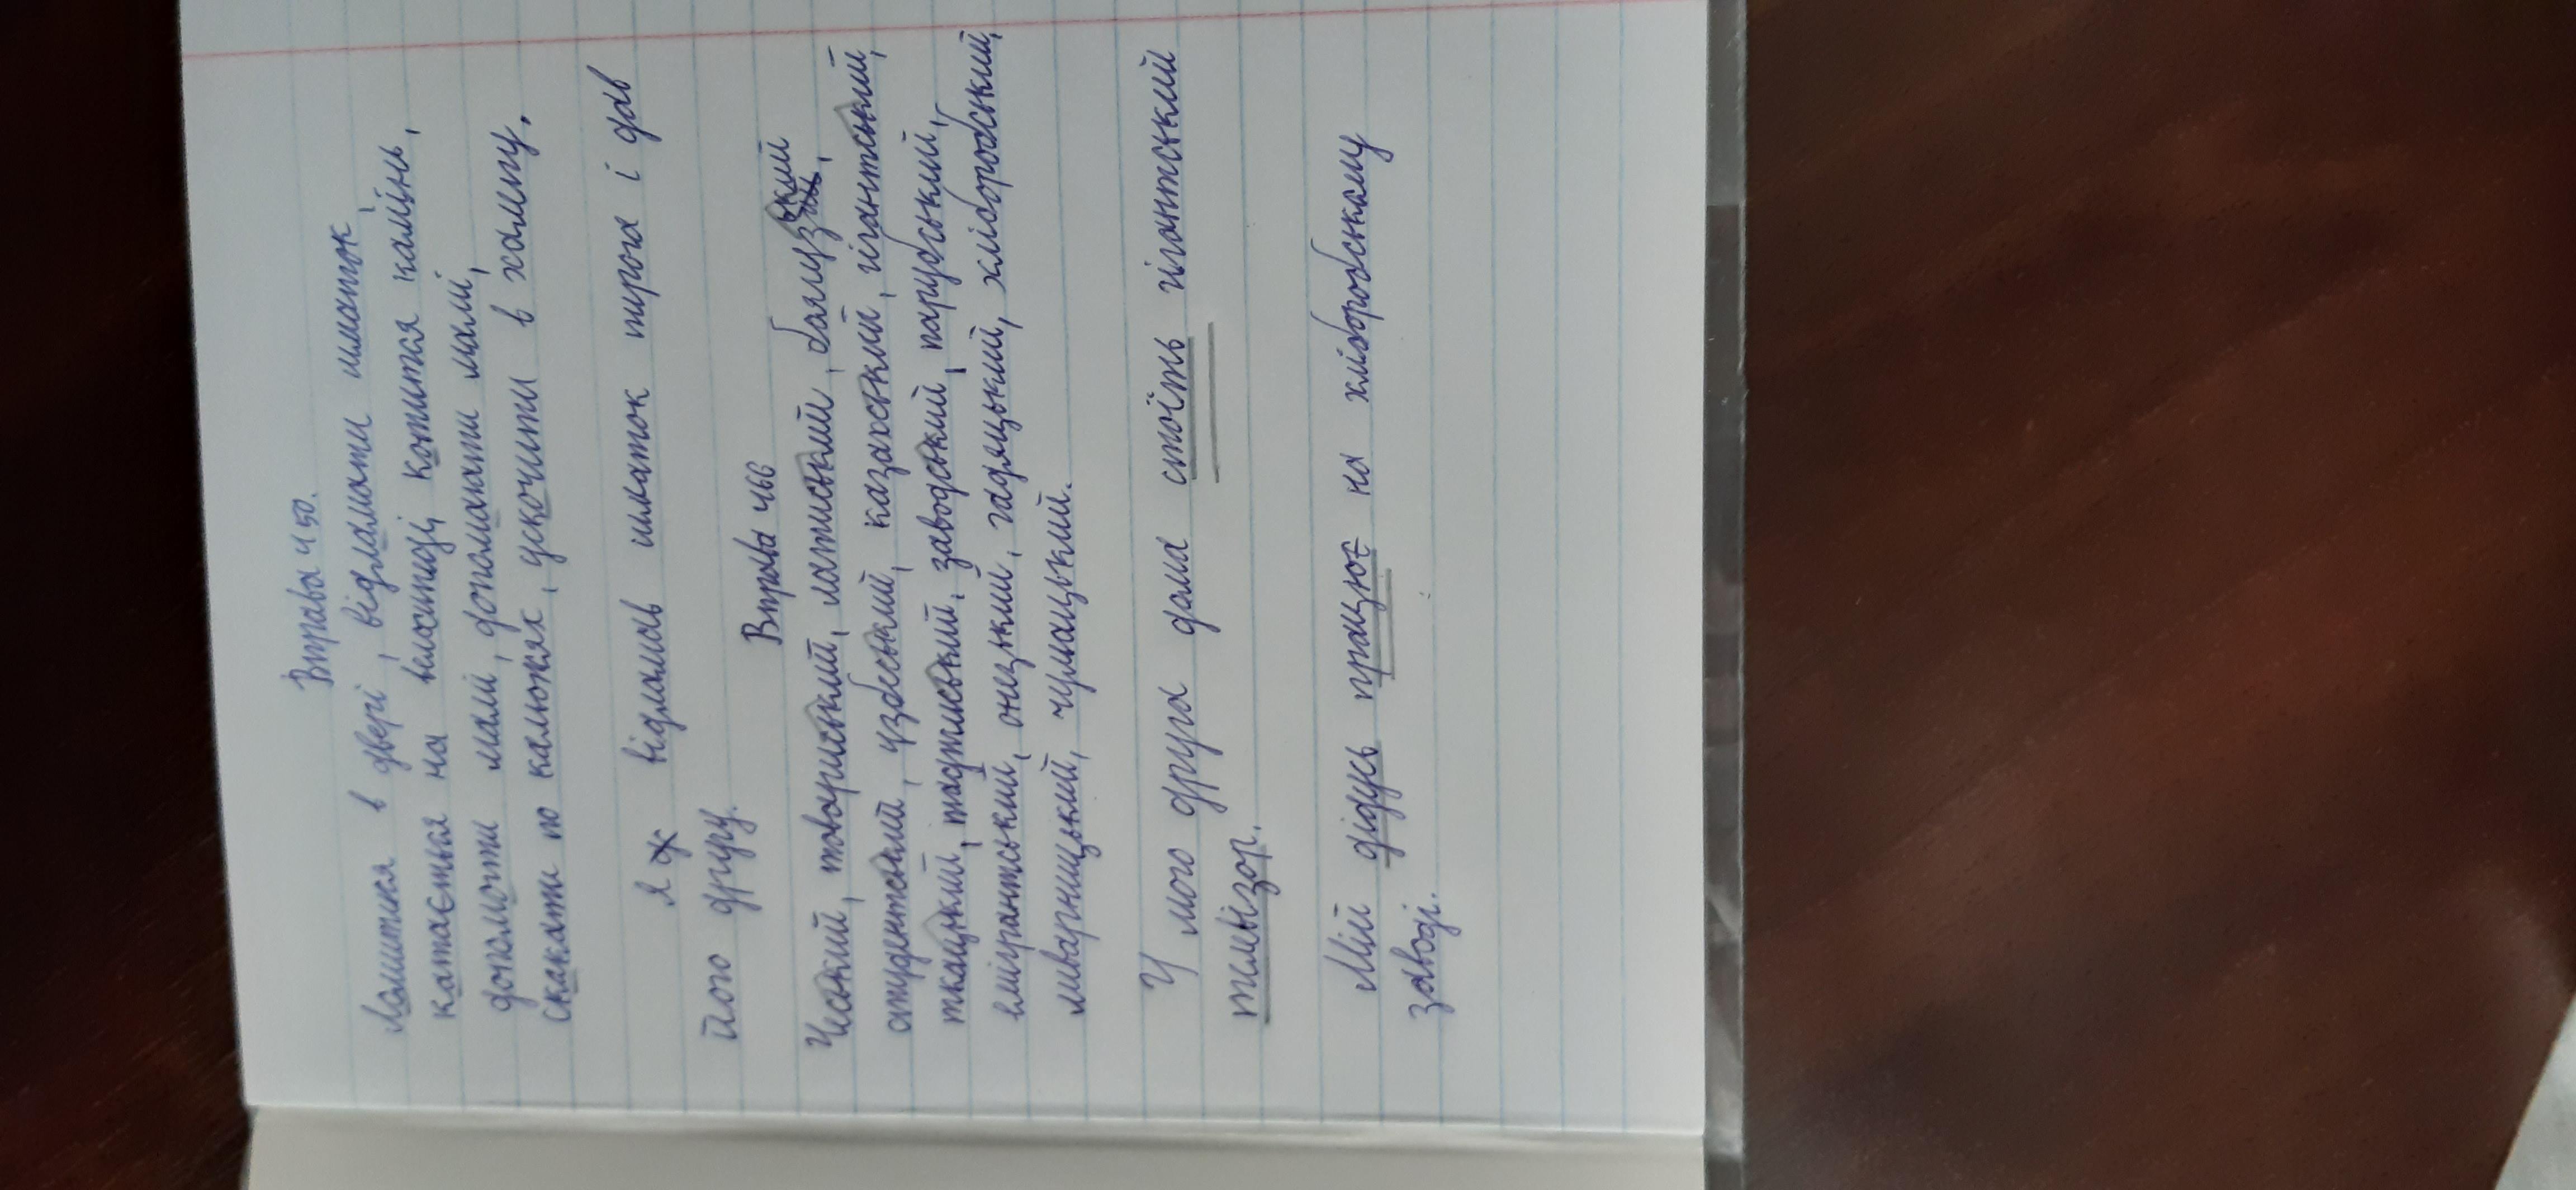 Вправа 450.
Ломитися в двері, відламати шматок,
катається на велосипеді котиться камінь,
допомогти мамі, допомагати мамі,
скакати по калюжах, ускочити в халепу.
я відломив шматок пирога і дав
його другу.
Вправа 466
Чеський, товариський, латиський, боягузький,
студентський, узбеський, казахський, гігантський,
ткацький, таджиський, заводський, парубський,
емігрантський, онцький, гадяцький, хліборобський,
ливарницький, чумацький.
У мого друга дома стоїть гігантський
телевізор.
Мій дідусь працює на хліборобському
заводі.